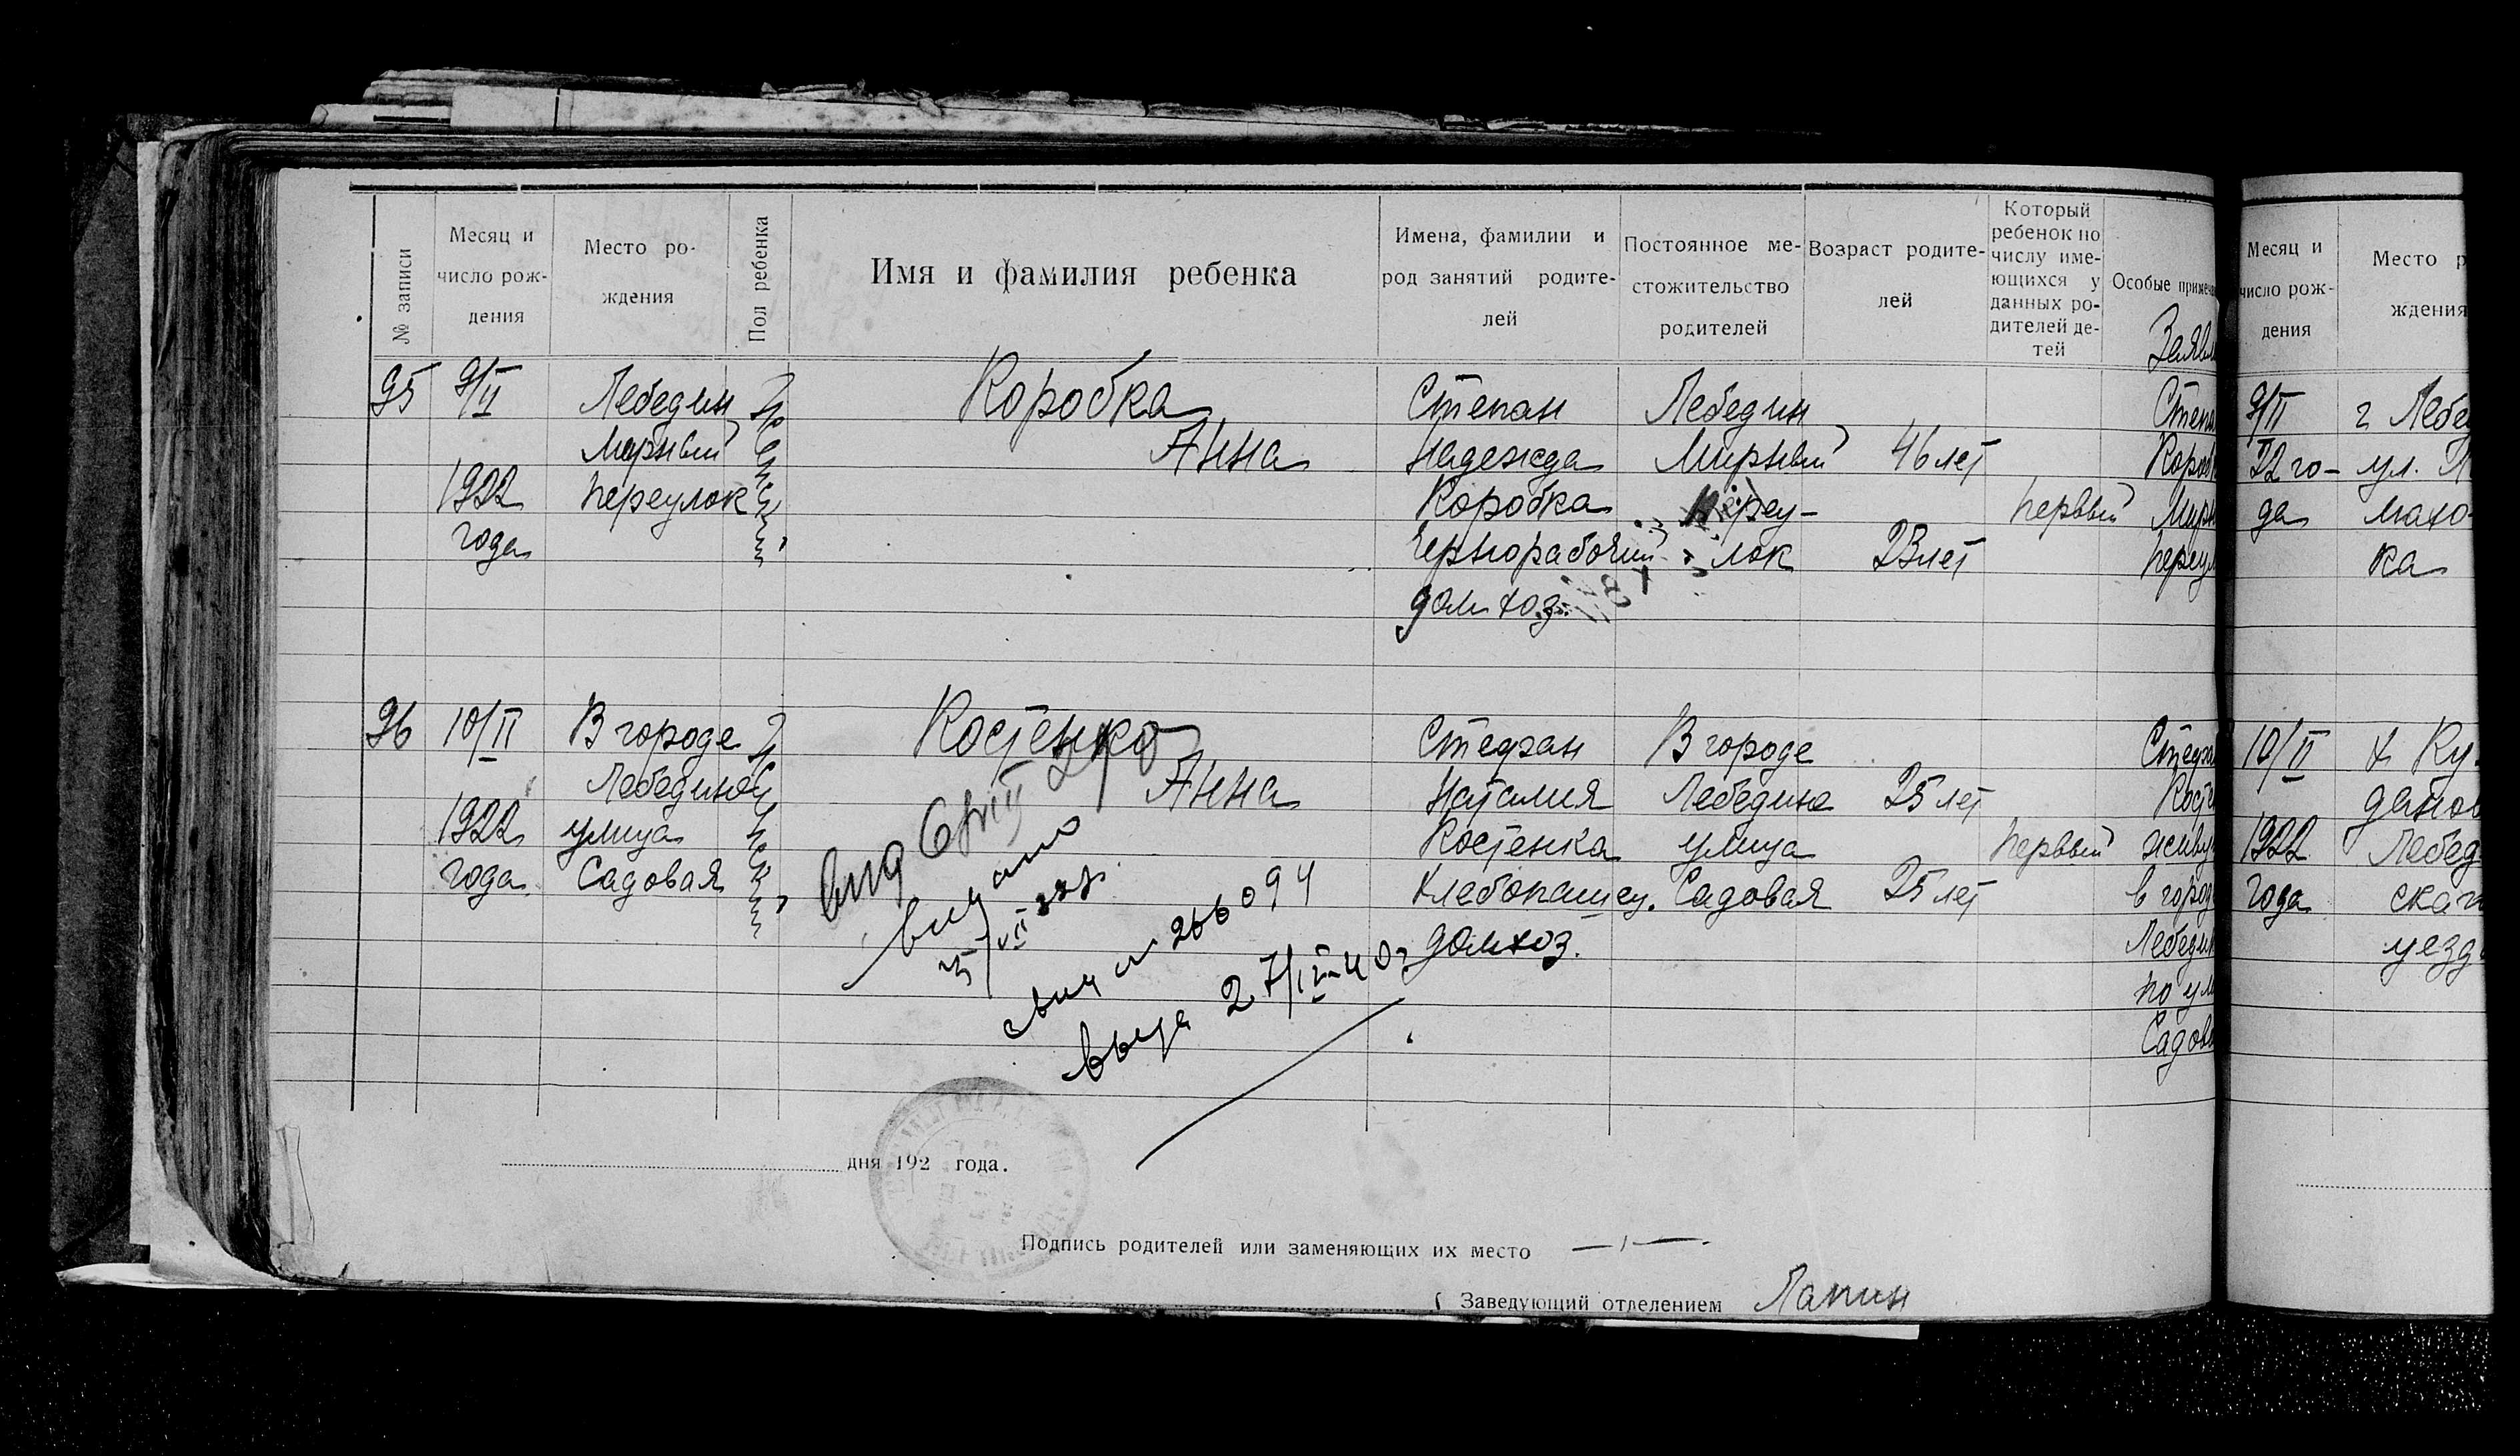 № записи
Месяц и
число рож-
дения
Место ро-
ждения
Пол ребенка
Имя и фамилия ребенка
Имена, фамилии и
род занятий родите-
лей
Постоянное ме-
стожительство
родителей
Возраст родите-
лей
Который
ребенок по
числу име-
ющихся у
данных ро-
дителей де-
тей
Особые примеча
Заявл
95
9/II
1922
года
Лебедин
Мирный
переулок
Женский
Коробка
Анна
Степан
Надежда
Коробка
Чернорабочий
домхоз.
Лебедин
Мирный
переу-
лок
46 лет
23 лет
первый
Степа
Короб
Мирн
переул
96
10/II
1922
года
В городе
Лебедине
улица
Садовая
Женский
Костенко
Анна
выдано
свид № 266094
выда 27/IV-40г
Стефан
Наталия
Костенка
Хлебопашец.
домхоз.
В городе
Лебедине
улица
Садовая
25 лет
25 лет
первый
Стефа
Косте
живу
в город
Лебеди
по ул
Садов
дня 192 года.
Подпись родителей или заменяющих их место
Заведующий отделением Лапин
Месяц и
число рож-
дения
Место р
ждения
9/II
22 го-
да
г Лебе
ул.
махо-
ка
10/II
1922
года
х Ку-
данов
Лебед
ског
уезда